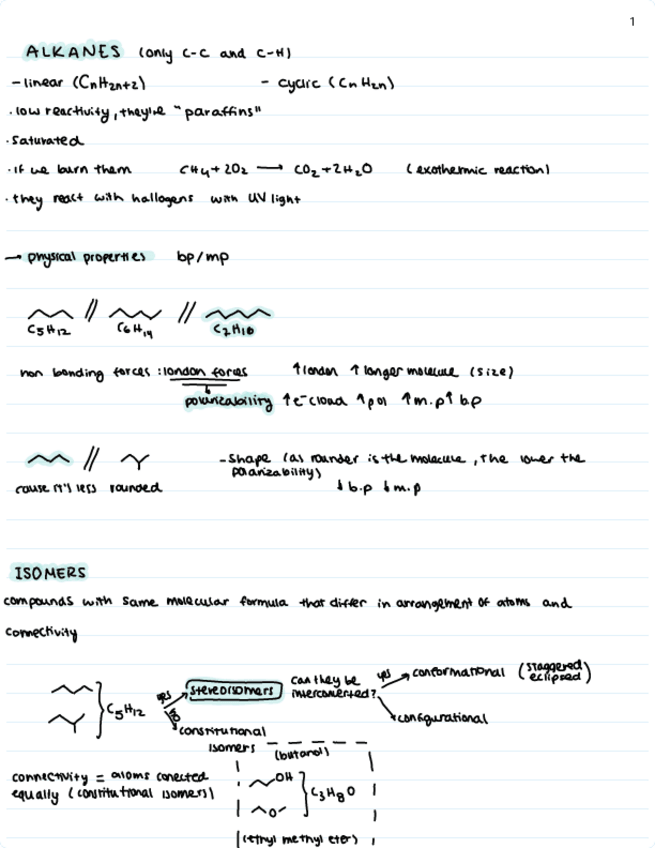 1
ALKANES (only C-C and C-H)
- linear (CnH2n+2) - cyclic (CnH2n)
· low reactivity, they're "paraffins"
· Saturated
· If we burn them CH4 + 2O2 → CO2 + 2H2O (exothermic reaction)
· they react with hallogens with UV light
→ physical properties bp/mp
// //
C5H12 C6H14 C7H16
non bonding forces : london forces ↑london ↑longer molecule (size)
polarizability ↑e- cloud ↑pol ↑m.p ↑bp
// - Shape (as rounder is the molecule, the lower the
polarizability)
cause it's less rounded ↓b.p ↓m.p
ISOMERS
compounds with same molecular formula that differ in arrangement of atoms and
connectivity
C5H12 yes stereoisomers can they be interconverted? yes conformational (staggered eclipsed)
no constitutional isomers configurational
(butanol)
connectivity = atoms conected OH
equally (constitutional isomers) C3H8O
O
(ethyl methyl eter)